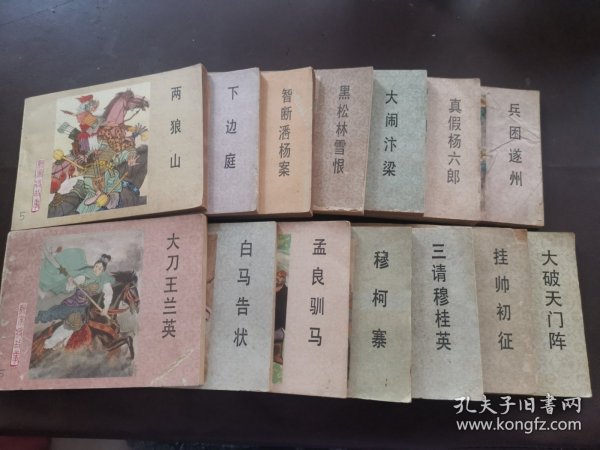 两狼山
下边庭
智断潘杨案
黑松林雪恨
大闹汴梁
真假杨六郎
兵困遂州
5
大刀王兰英
白马告状
孟良驯马
穆柯寨
三请穆桂英
挂帅初征
大破天门阵
5
孔夫子旧书网
www.kongfz.com